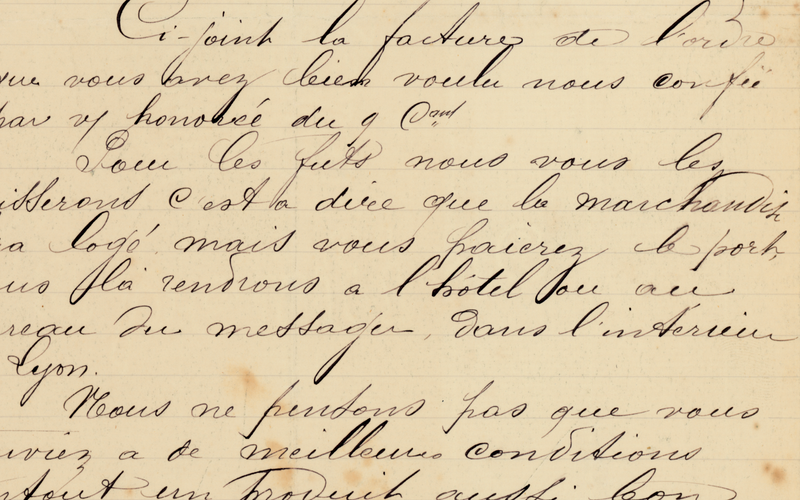 Ci-joint la facture de l'ordre
que vous avez bien voulu nous confié
par v/ honorée du 9 Cant
Pour les futs nous vous les
isserons c'est a dire que la marchandis
a logé mais vous paierez le port,
us la rendrons a l'hôtel ou au
reau du messager, dans l'interieur
Lyon.
Nous ne pensons pas que vous
uviez a de meilleures conditions
tout un Produit aussi bon